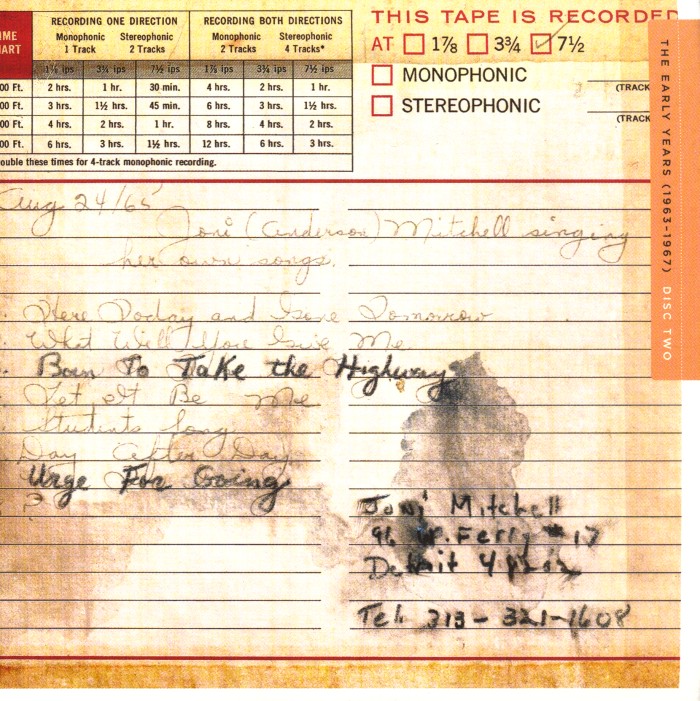 RECORDING ONE DIRECTION RECORDING BOTH DIRECTIONS
Monophonic 1 Track Stereophonic 2 Tracks Monophonic 2 Tracks Stereophonic 4 Tracks*
1⅞ ips 3¾ ips 7½ ips 1⅞ ips 3¾ ips 7½ ips
00 Ft. 2 hrs. 1 hr. 30 min. 4 hrs. 2 hrs. 1 hr.
00 Ft. 3 hrs. 1½ hrs. 45 min. 6 hrs. 3 hrs. 1½ hrs.
00 Ft. 4 hrs. 2 hrs. 1 hr. 8 hrs. 4 hrs. 2 hrs.
00 Ft. 6 hrs. 3 hrs. 1½ hrs. 12 hrs. 6 hrs. 3 hrs.
ouble these times for 4-track monophonic recording.
THIS TAPE IS RECORDED
AT 1⅞ 3¾ 7½
MONOPHONIC
(TRACK
STEREOPHONIC
(TRACK
THE EARLY YEARS (1963–1967) DISC TWO
Aug 24/65
Joni (Anderson) Mitchell singing
her own songs.
Here Today and Gone Tomorrow
What Will You Give Me
Born To Take the Highway
Let It Be Me
Students Song
Day After Day
Urge For Going
?
Joni Mitchell
96 W. Ferry #17
Detroit
Tel. 313-321-1608